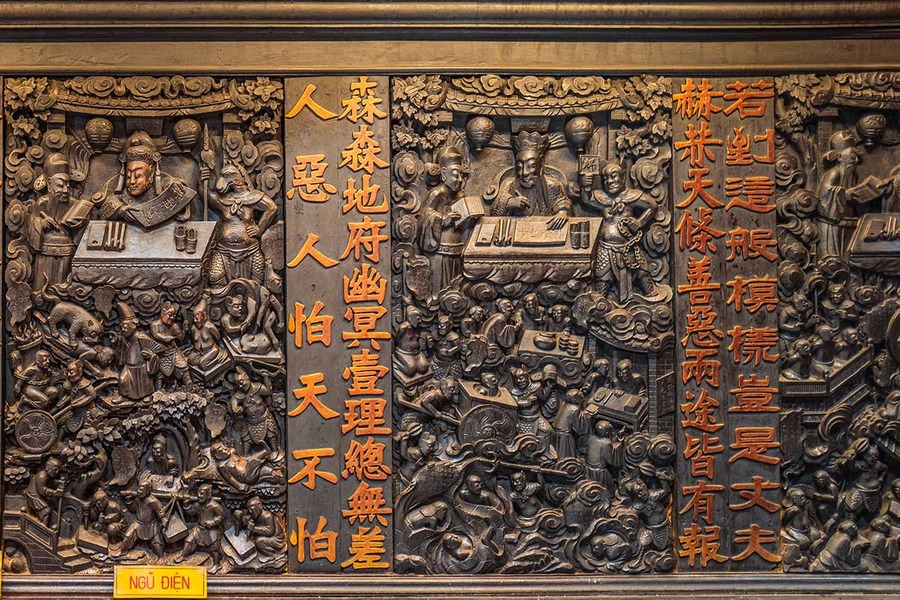 若到這般模樣豈是丈夫
赫赫天條善惡兩途皆有報
森森地府幽冥壹理總無差
人惡人怕天不怕
NGŨ ĐIỆN